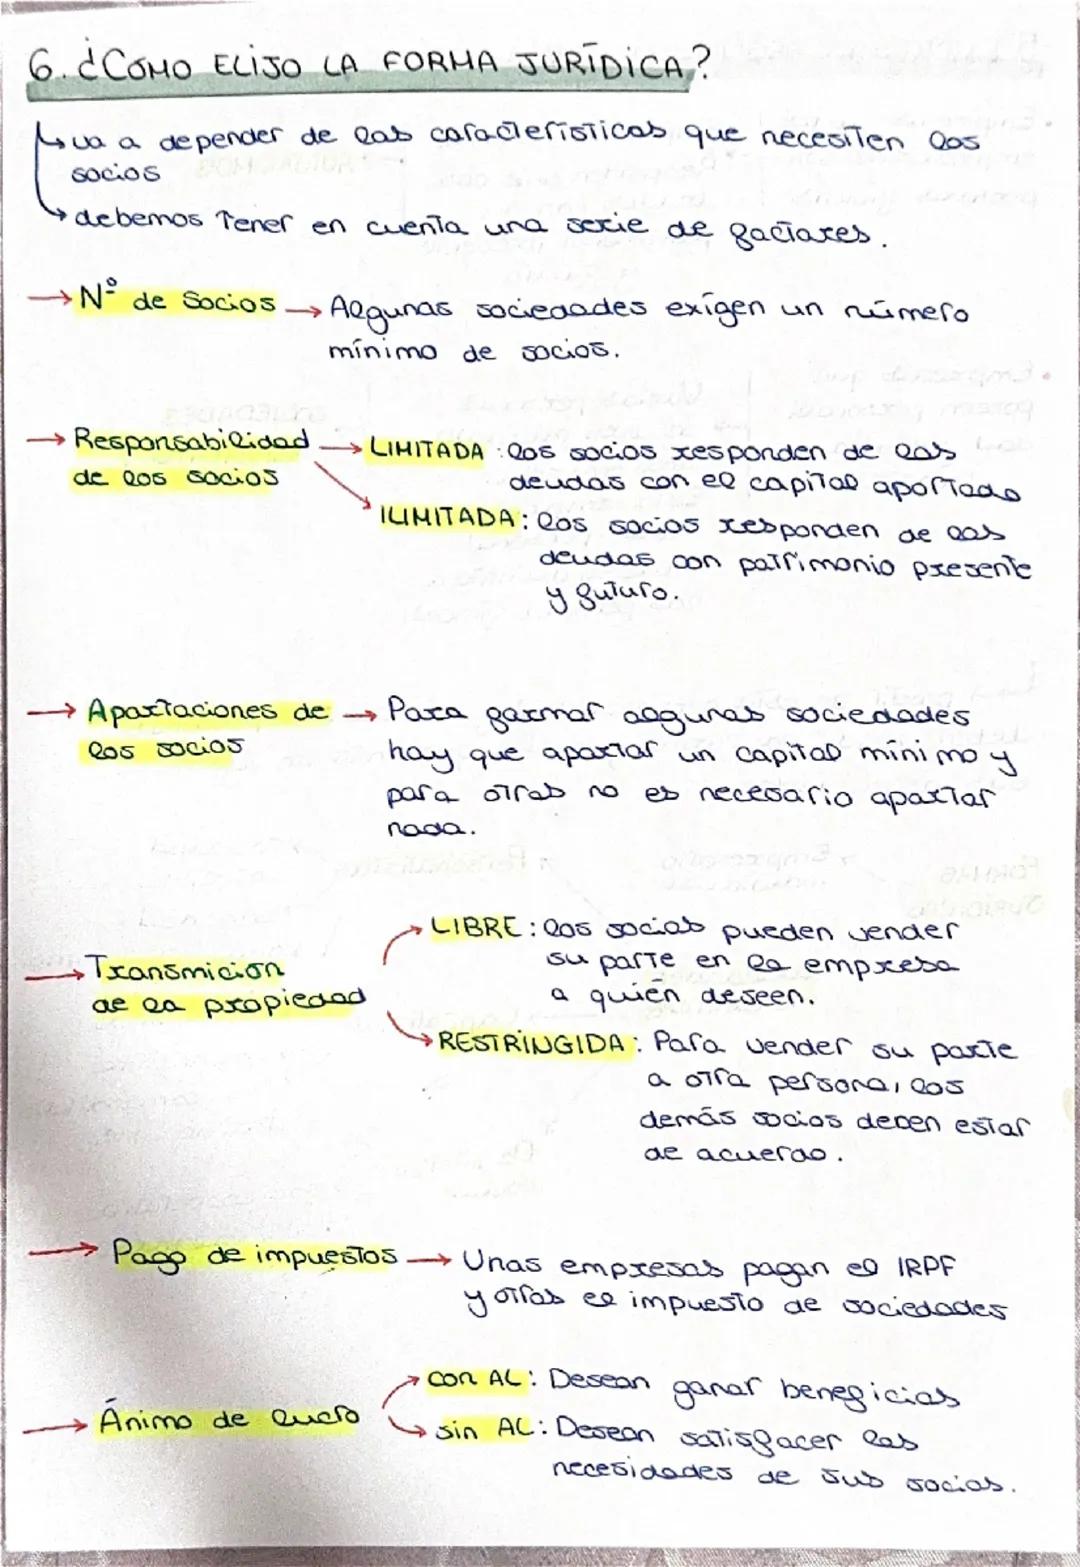 6. ¿CÓMO ELIJO LA FORMA JURÍDICA?
↳ va a depender de las características que necesiten los
socios
↳ debemos tener en cuenta una serie de factores.
→ Nº de Socios → Algunas sociedades exígen un número
mínimo de socios.
→ Responsabilidad → LIMITADA: los socios responden de las
de los socios deudas con el capital aportado
ILIMITADA: los socios responden de las
deudas con patrimonio presente
y futuro.
→ Aportaciones de → Para formar algunas sociedades
los socios hay que aportar un capital mínimo y
para otras no es necesario aportar
nada.
LIBRE: los socios pueden vender
su parte en la empresa
a quién deseen.
→ Transmición
de la propiedad
RESTRINGIDA: Para vender su parte
a otra persona, los
demás socios deben estar
de acuerdo.
→ Pago de impuestos → Unas empresas pagan el IRPF
y otras el impuesto de sociedades
→ Ánimo de lucro
con AL: Desean ganar beneficios
sin AL: Desean satisfacer las
necesidades de sus socios.